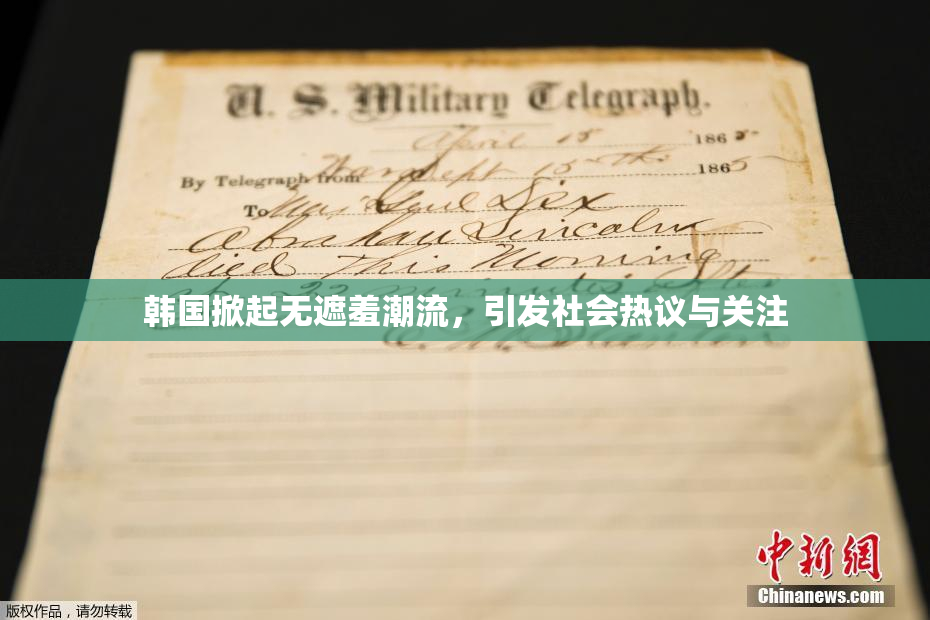 U. S. Military Telegraph.
April 15 1865
By Telegraph from War Dept 15th 1865
To Maj Genl Dix
Abraham Lincoln
died This Morning
22 minutes after
韩国掀起无遮羞潮流，引发社会热议与关注
E. M. Stanton
中新网
Chinanews.com
版权作品，请勿转载